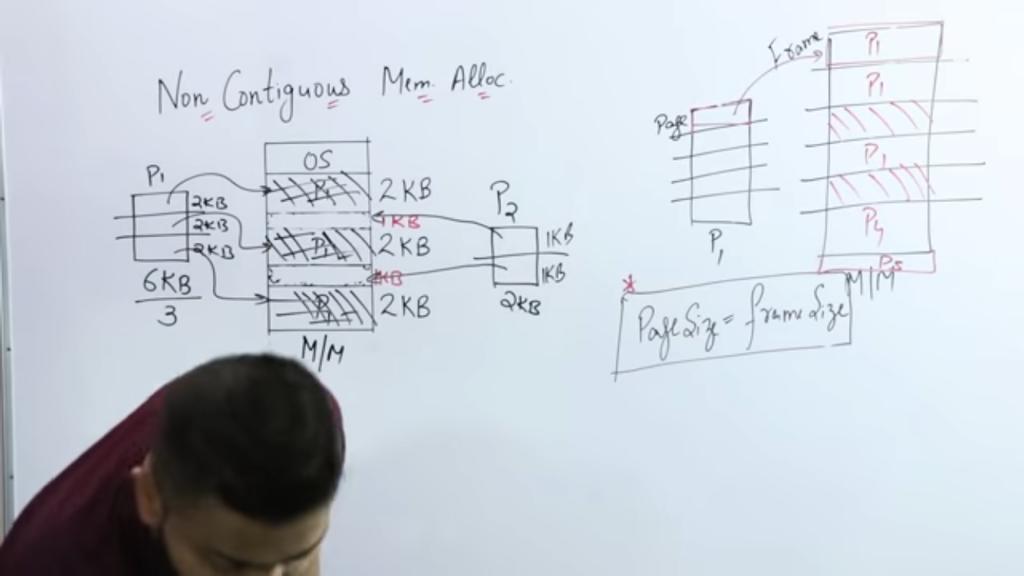 Non Contiguous Mem. Alloc.
P1
2KB
2KB
2KB
6KB
3
OS
2KB
1KB
P1
2KB
2KB
M/M
P2
1KB
1KB
2KB
Frame
Page
P1
P1
P1
P1
M/M
* Page Size = frame Size